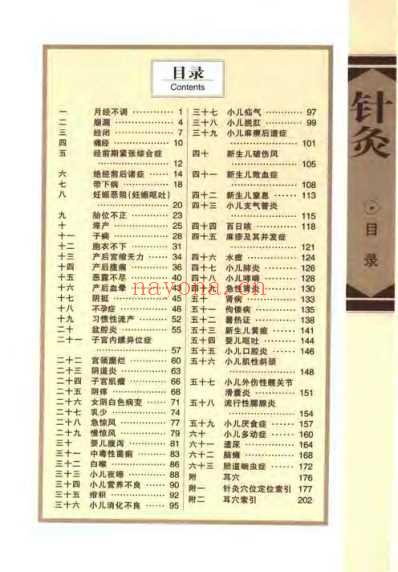 目录
Contents
一 月经不调 ············ 1
二 崩漏 ············ 4
三 经闭 ············ 7
四 痛经 ············ 10
五 经前期紧张综合症
············ 12
六 绝经前后诸症 ······ 14
七 带下病 ············ 18
八 妊娠恶阻(妊娠呕吐)
············ 20
九 胎位不正 ············ 23
十 滞产 ············ 25
十一 子痫 ············ 28
十二 胞衣不下 ········· 31
十三 产后宫缩无力 ······ 34
十四 产后腹痛 ········· 36
十五 恶露不尽 ········· 40
十六 产后血晕 ········· 43
十七 阴挺 ············ 45
十八 不孕症 ············ 48
十九 习惯性流产 ······ 52
二十 盆腔炎 ············ 55
二十一 子宫内膜异位症
············ 57
二十二 宫颈糜烂 ········· 60
二十三 阴道炎 ············ 63
二十四 子宫肌瘤 ········· 66
二十五 阴痒 ············ 68
二十六 女阴白色病变 ··· 71
二十七 乳少 ············ 74
二十八 急惊风 ············ 77
二十九 慢惊风 ············ 79
三十 婴儿腹泻 ········· 81
三十一 中毒性菌痢 ······ 83
三十二 白喉 ············ 86
三十三 小儿夜啼 ········· 88
三十四 小儿营养不良 ··· 90
三十五 疳积 ············ 92
三十六 小儿消化不良 ··· 95
三十七 小儿疝气 ········· 97
三十八 小儿脱肛 ········· 99
三十九 小儿麻痹后遗症
············ 101
四十 新生儿破伤风
············ 105
四十一 新生儿败血症
············ 108
四十二 新生儿窒息 ······ 113
四十三 小儿支气管炎
············ 115
四十四 百日咳 ············ 118
四十五 麻疹及其并发症
············ 121
四十六 水痘 ············ 124
四十七 小儿肺炎 ········· 126
四十八 小儿哮喘 ········· 128
急性肾炎 ········· 130
五十 肾病 ············ 133
五十一 佝偻病 ············ 135
五十二 暑热证 ············ 138
五十三 新生儿黄疸 ······ 141
五十四 婴儿呕吐 ········· 144
五十五 小儿口腔炎 ······ 146
五十六 小儿肌性斜颈
············ 148
五十七 小儿外伤性髋关节
滑囊炎 ············ 151
五十八 流行性腮腺炎
············ 154
五十九 小儿厌食症 ······ 157
六十 小儿多动症 ······ 160
六十一 遗尿 ············ 164
六十二 脑瘫 ············ 168
六十三 胆道蛔虫症 ······ 172
附 耳穴 ············ 176
附一 针灸穴位定位索引 177
附二 耳穴索引 ········· 202
针灸
目录